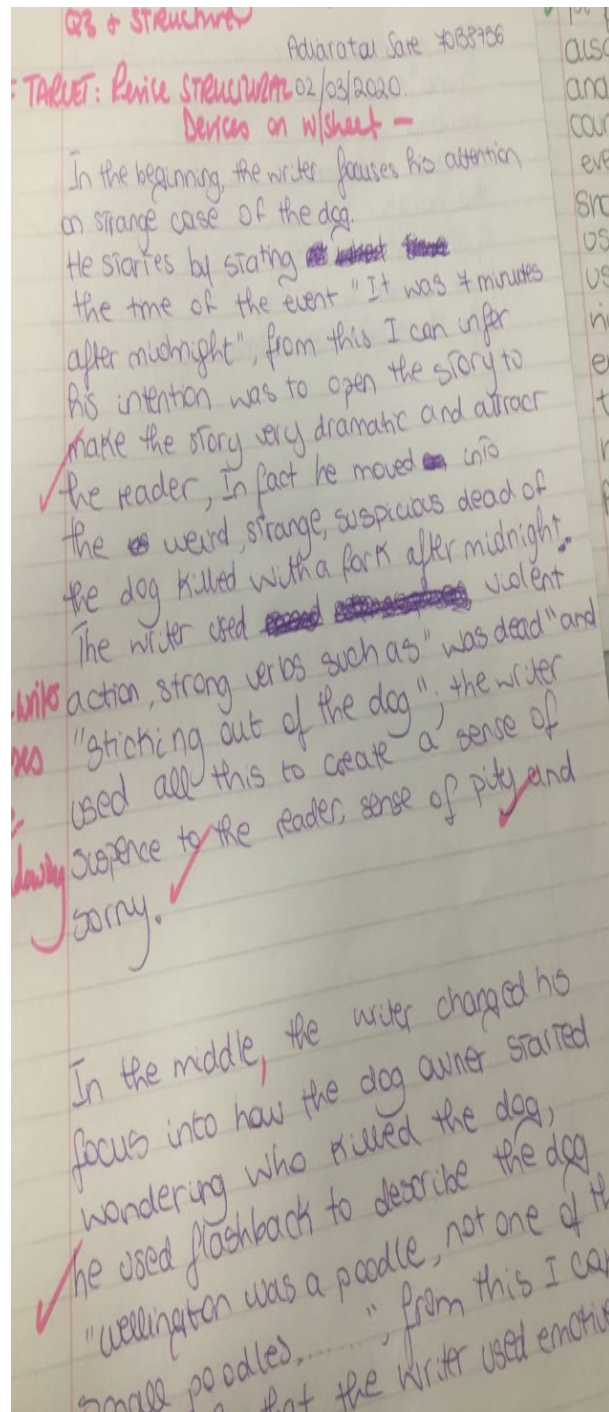 Q3 & STRUCTURE
Adiaratou Sare
02/03/2020.
TARGET: Revise STRUCTURAL
Devices on w/sheet -
In the beginning, the writer focuses his attention
on strange case of the dog.
He staries by stating
the time of the event "It was 7 minutes
after midnight", from this I can infer
his intention was to open the story to
make the story very dramatic and attract
the reader, In fact he moved into
the weird, strange, suspicious dead of
the dog killed with a fork after midnight.
The writer used violent
action, strong verbs such as "was dead" and
"sticking out of the dog", the writer
used all this to create a sense of
suspence to the reader, sense of pity and
sorry.
In the middle, the writer changed his
focus into how the dog owner started
wondering who killed the dog,
he used flashback to describe the dog
"wellington was a poodle, not one of
small poodles, ......", from this I can
that the writer used